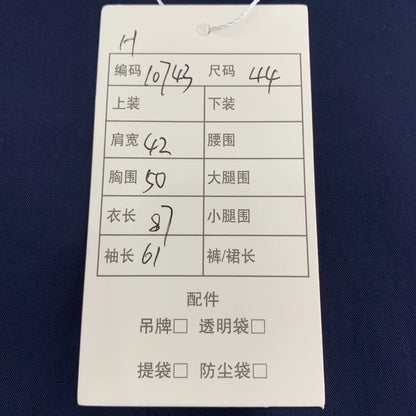 H
编码 10743 尺码 44
上装 下装
肩宽 42 腰围
胸围 50 大腿围
衣长 87 小腿围
袖长 61 裤/裙长
配件
吊牌□ 透明袋□
提袋□ 防尘袋□